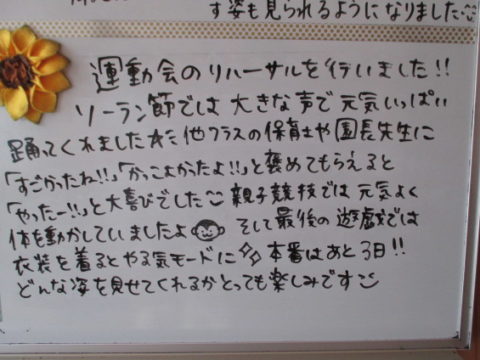 す姿も見られるようになりました
運動会のリハーサルを行いました!!
ソーラン節では大きな声で元気いっぱい
踊ってくれました☆彡他クラスの保育士や園長先生に
「すごかったね!!」「かっこよかったよ!!」と褒めてもらえると
「やったー!!」と大喜びでした 親子競技では元気よく
体を動かしていましたよ そして最後の遊戯では
衣装を着るとやる気モードに 本番はあと3日!!
どんな姿を見せてくれるかとっても楽しみです